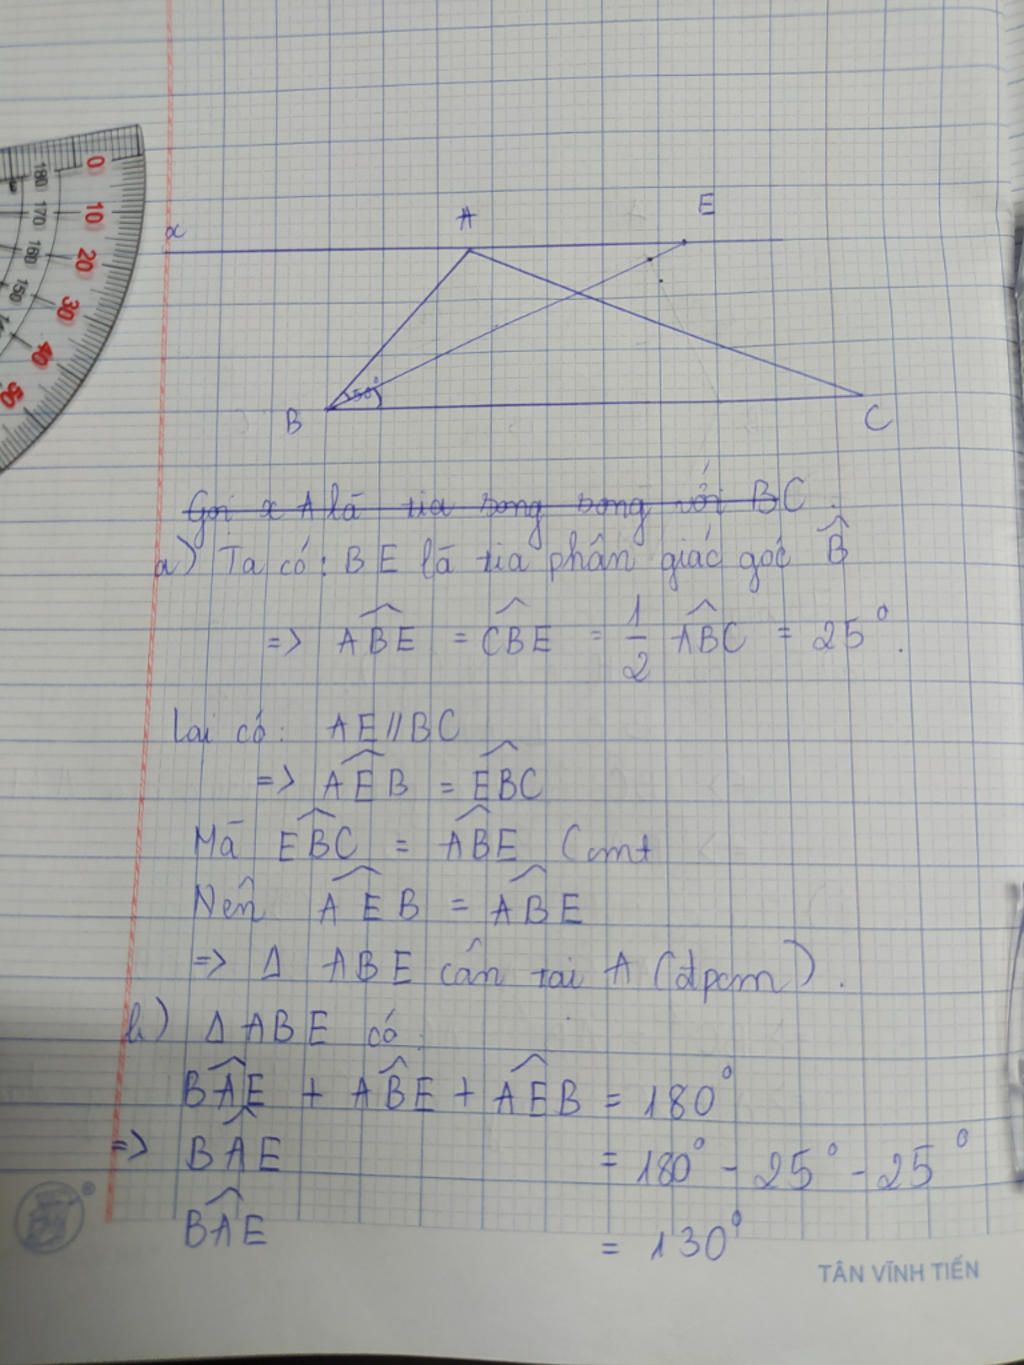 0
10
20
30
40
50
180
170
160
150
x
A
E
B
50°
C
Gọi xA là tia song song với BC.
a) Ta có: BE là tia phân giác góc B̂
=> ABÊ = CBÊ = 1/2 ABĈ = 25°.
Lại có: AE // BC
=> AÊB = EB̂C
Mà EB̂C = AB̂E (cmt
Nên AÊB = AB̂E
=> Δ ABE cân tại A (đpcm).
b) Δ ABE có:
BÂE + AB̂E + AÊB = 180°
=> BÂE = 180° - 25° - 25°
BÂE = 130°
TÂN VĨNH TIẾN